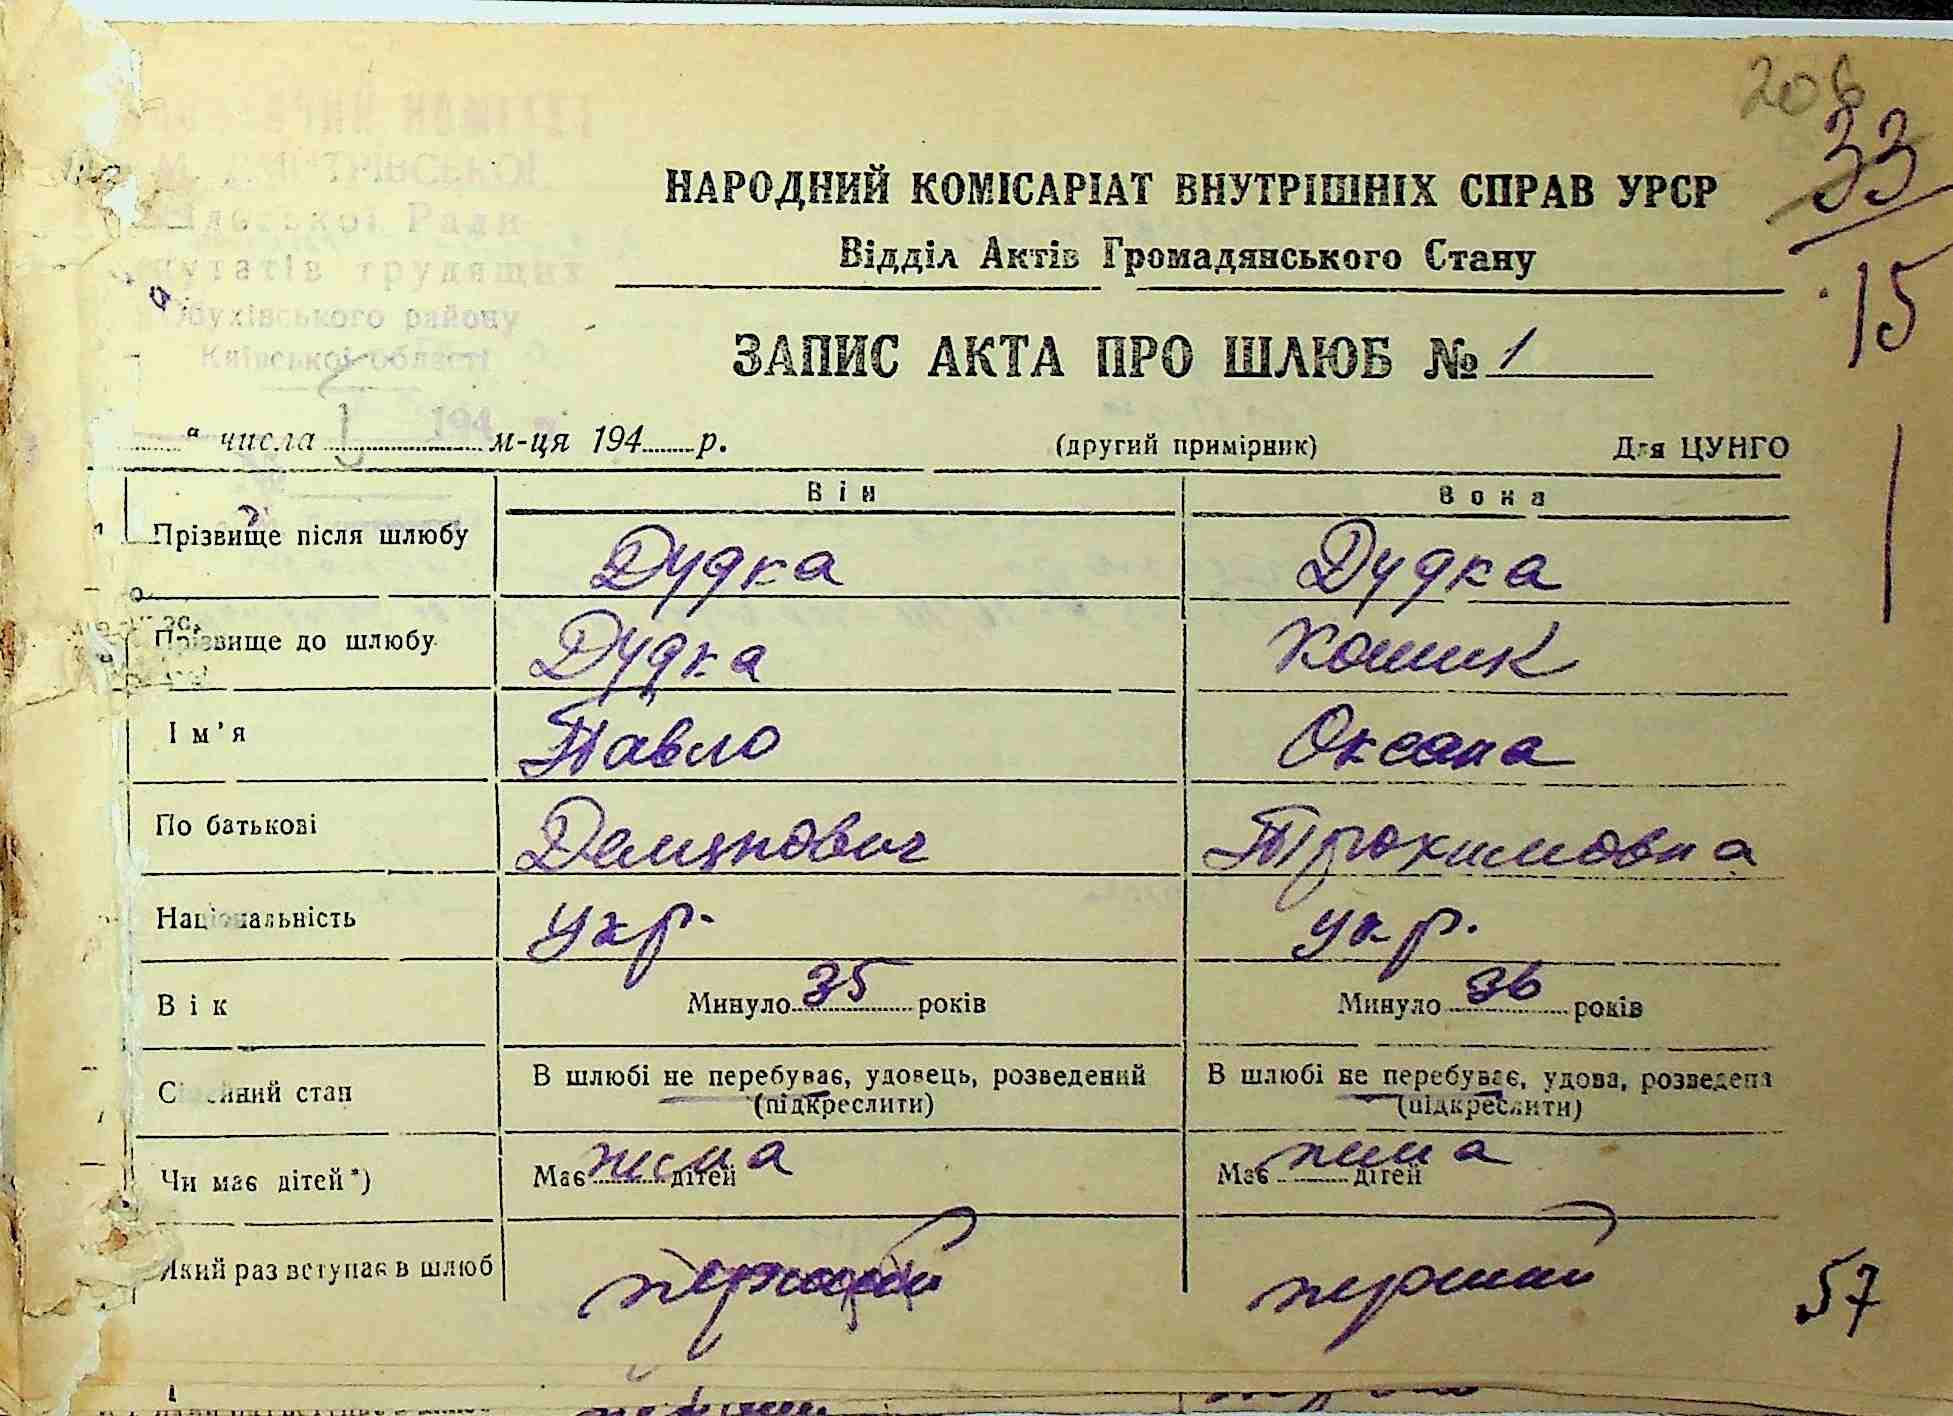 206
33
15
М. ДМИТРІВСЬКОЇ
Ради
трудящих
району
Київської області
194
НАРОДНИЙ КОМІСАРІАТ ВНУТРІШНІХ СПРАВ УРСР
Відділ Актів Громадянського Стану
ЗАПИС АКТА ПРО ШЛЮБ № 1
" числа м-ця 194 р. (другий примірник) Для ЦУНГО
Він Вона
Прізвище після шлюбу Дудка Дудка
Прізвище до шлюбу Дудка Кошик
Ім'я Павло Оксана
По батькові Демидович Трохимовна
Національність укр. укр.
Вік Минуло 35 років Минуло 36 років
Сімейний стан В шлюбі не перебуває, удовець, розведений В шлюбі не перебуває, удова, розведена
(підкреслити) (підкреслити)
Чи має дітей*) Має нема дітей Має нема дітей
Який раз вступає в шлюб перший перший
57